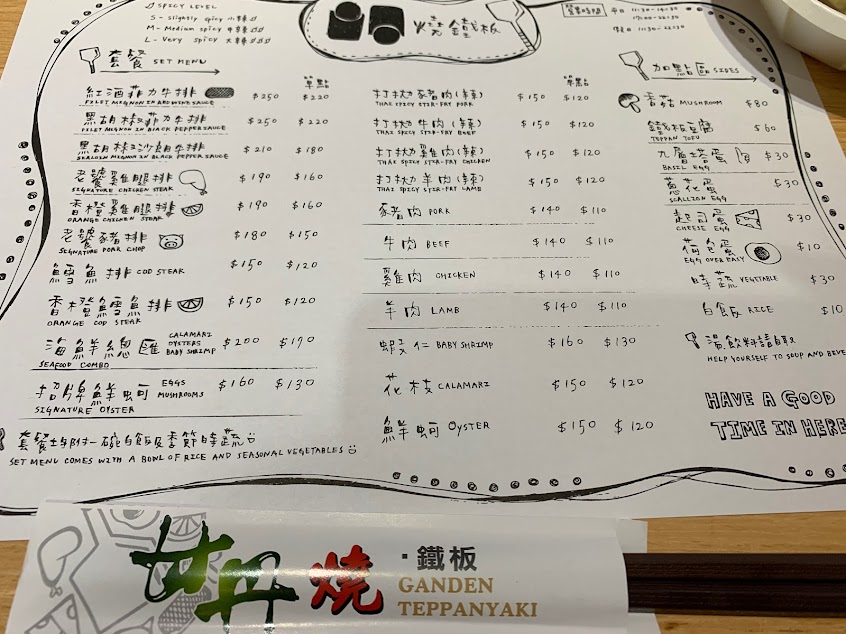 SPICY LEVEL
S - Slightly spicy 小辣
M - Medium spicy 中辣
L - Very spicy 大辣
燒鐵板
營業時間
平日 11:30-14:30
17:00-22:30
假日 11:30-22:30
套餐 SET MENU
單點
紅酒菲力牛排 $250 $220
FILET MIGNON IN RED WINE SAUCE
黑胡椒菲力牛排 $250 $220
FILET MIGNON IN BLACK PEPPER SAUCE
黑胡椒沙朗牛排 $210 $180
SERLOIN MIGNON IN BLACK PEPPER SAUCE
老饕雞腿排 $190 $160
SIGNATURE CHICKEN STEAK
香橙雞腿排 $190 $160
ORANGE CHICKEN STEAK
老饕豬排 $180 $150
SIGNATURE PORK CHOP
鱈魚排 COD STEAK $150 $120
香橙鱈魚排 $150 $120
ORANGE COD STEAK
海鮮總匯 CALAMARI OYSTERS BABY SHRIMP $200 $190
SEAFOOD COMBO
招牌鮮蚵 EGGS MUSHROOMS $160 $130
SIGNATURE OYSTER
套餐均附一碗白飯及季節時蔬
SET MENU COMES WITH A BOWL OF RICE AND SEASONAL VEGETABLES
單點
打拋豬肉(辣) $150 $120
THAI SPICY STIR-FRY PORK
打拋牛肉(辣) $150 $120
THAI SPICY STIR-FRY BEEF
打拋雞肉(辣) $150 $120
THAI SPICY STIR-FRY CHICKEN
打拋羊肉(辣) $150 $120
THAI SPICY STIR-FRY LAMB
豬肉 PORK $140 $110
牛肉 BEEF $140 $110
雞肉 CHICKEN $140 $110
羊肉 LAMB $140 $110
蝦仁 BABY SHRIMP $160 $130
花枝 CALAMARI $150 $120
鮮蚵 OYSTER $150 $120
加點區 SIDES
香菇 MUSHROOM $80
鐵板豆腐 $60
TEPPAN TOFU
九層塔蛋 $30
BASIL EGG
蔥花蛋 $30
SCALLION EGG
起司蛋 $30
CHEESE EGG
荷包蛋 $10
EGG OVER EASY
時蔬 VEGETABLE $30
白飯 RICE $10
湯飲料請自取
HELP YOURSELF TO SOUP AND BEVE
HAVE A GOOD
TIME IN HERE
甘丹燒
·鐵板
GANDEN
TEPPANYAKI